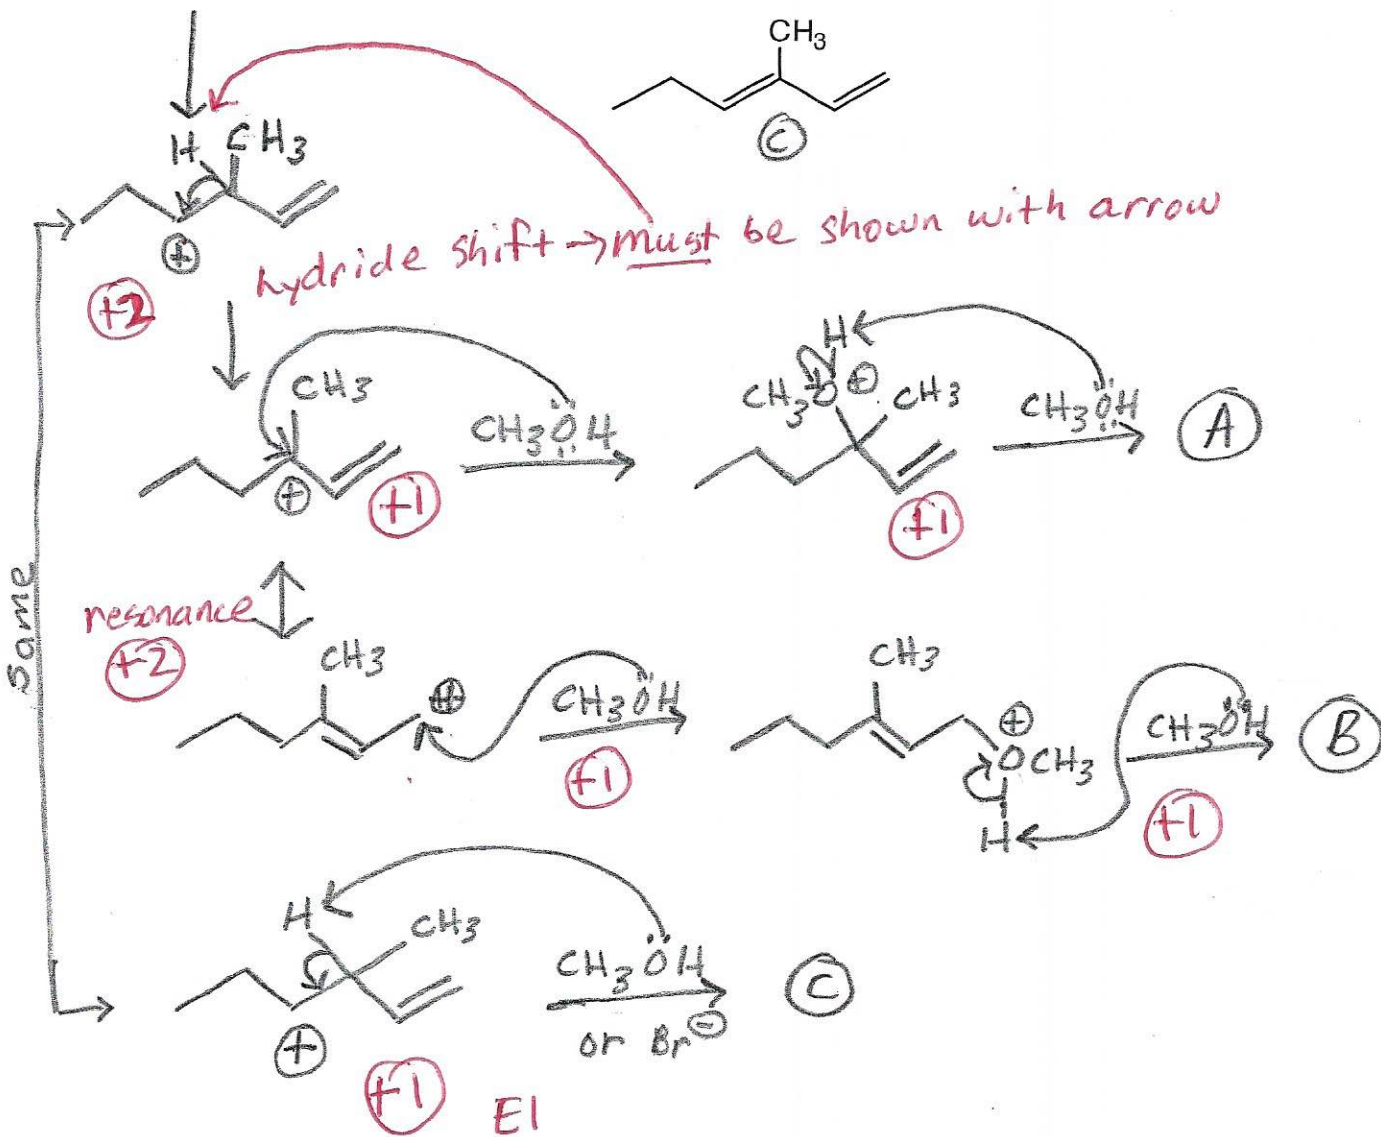 CH3
C
H CH3
+
hydride shift → must be shown with arrow
+2
H
CH3
CH3O +
CH3
CH3ÖH
CH3ÖH
A
+
+1
+1
Same
resonance
+2
CH3
+
CH3ÖH
+1
CH3
+
OCH3
H
CH3ÖH
+1
B
H
CH3
CH3ÖH
or Br -
C
+
+1
E1